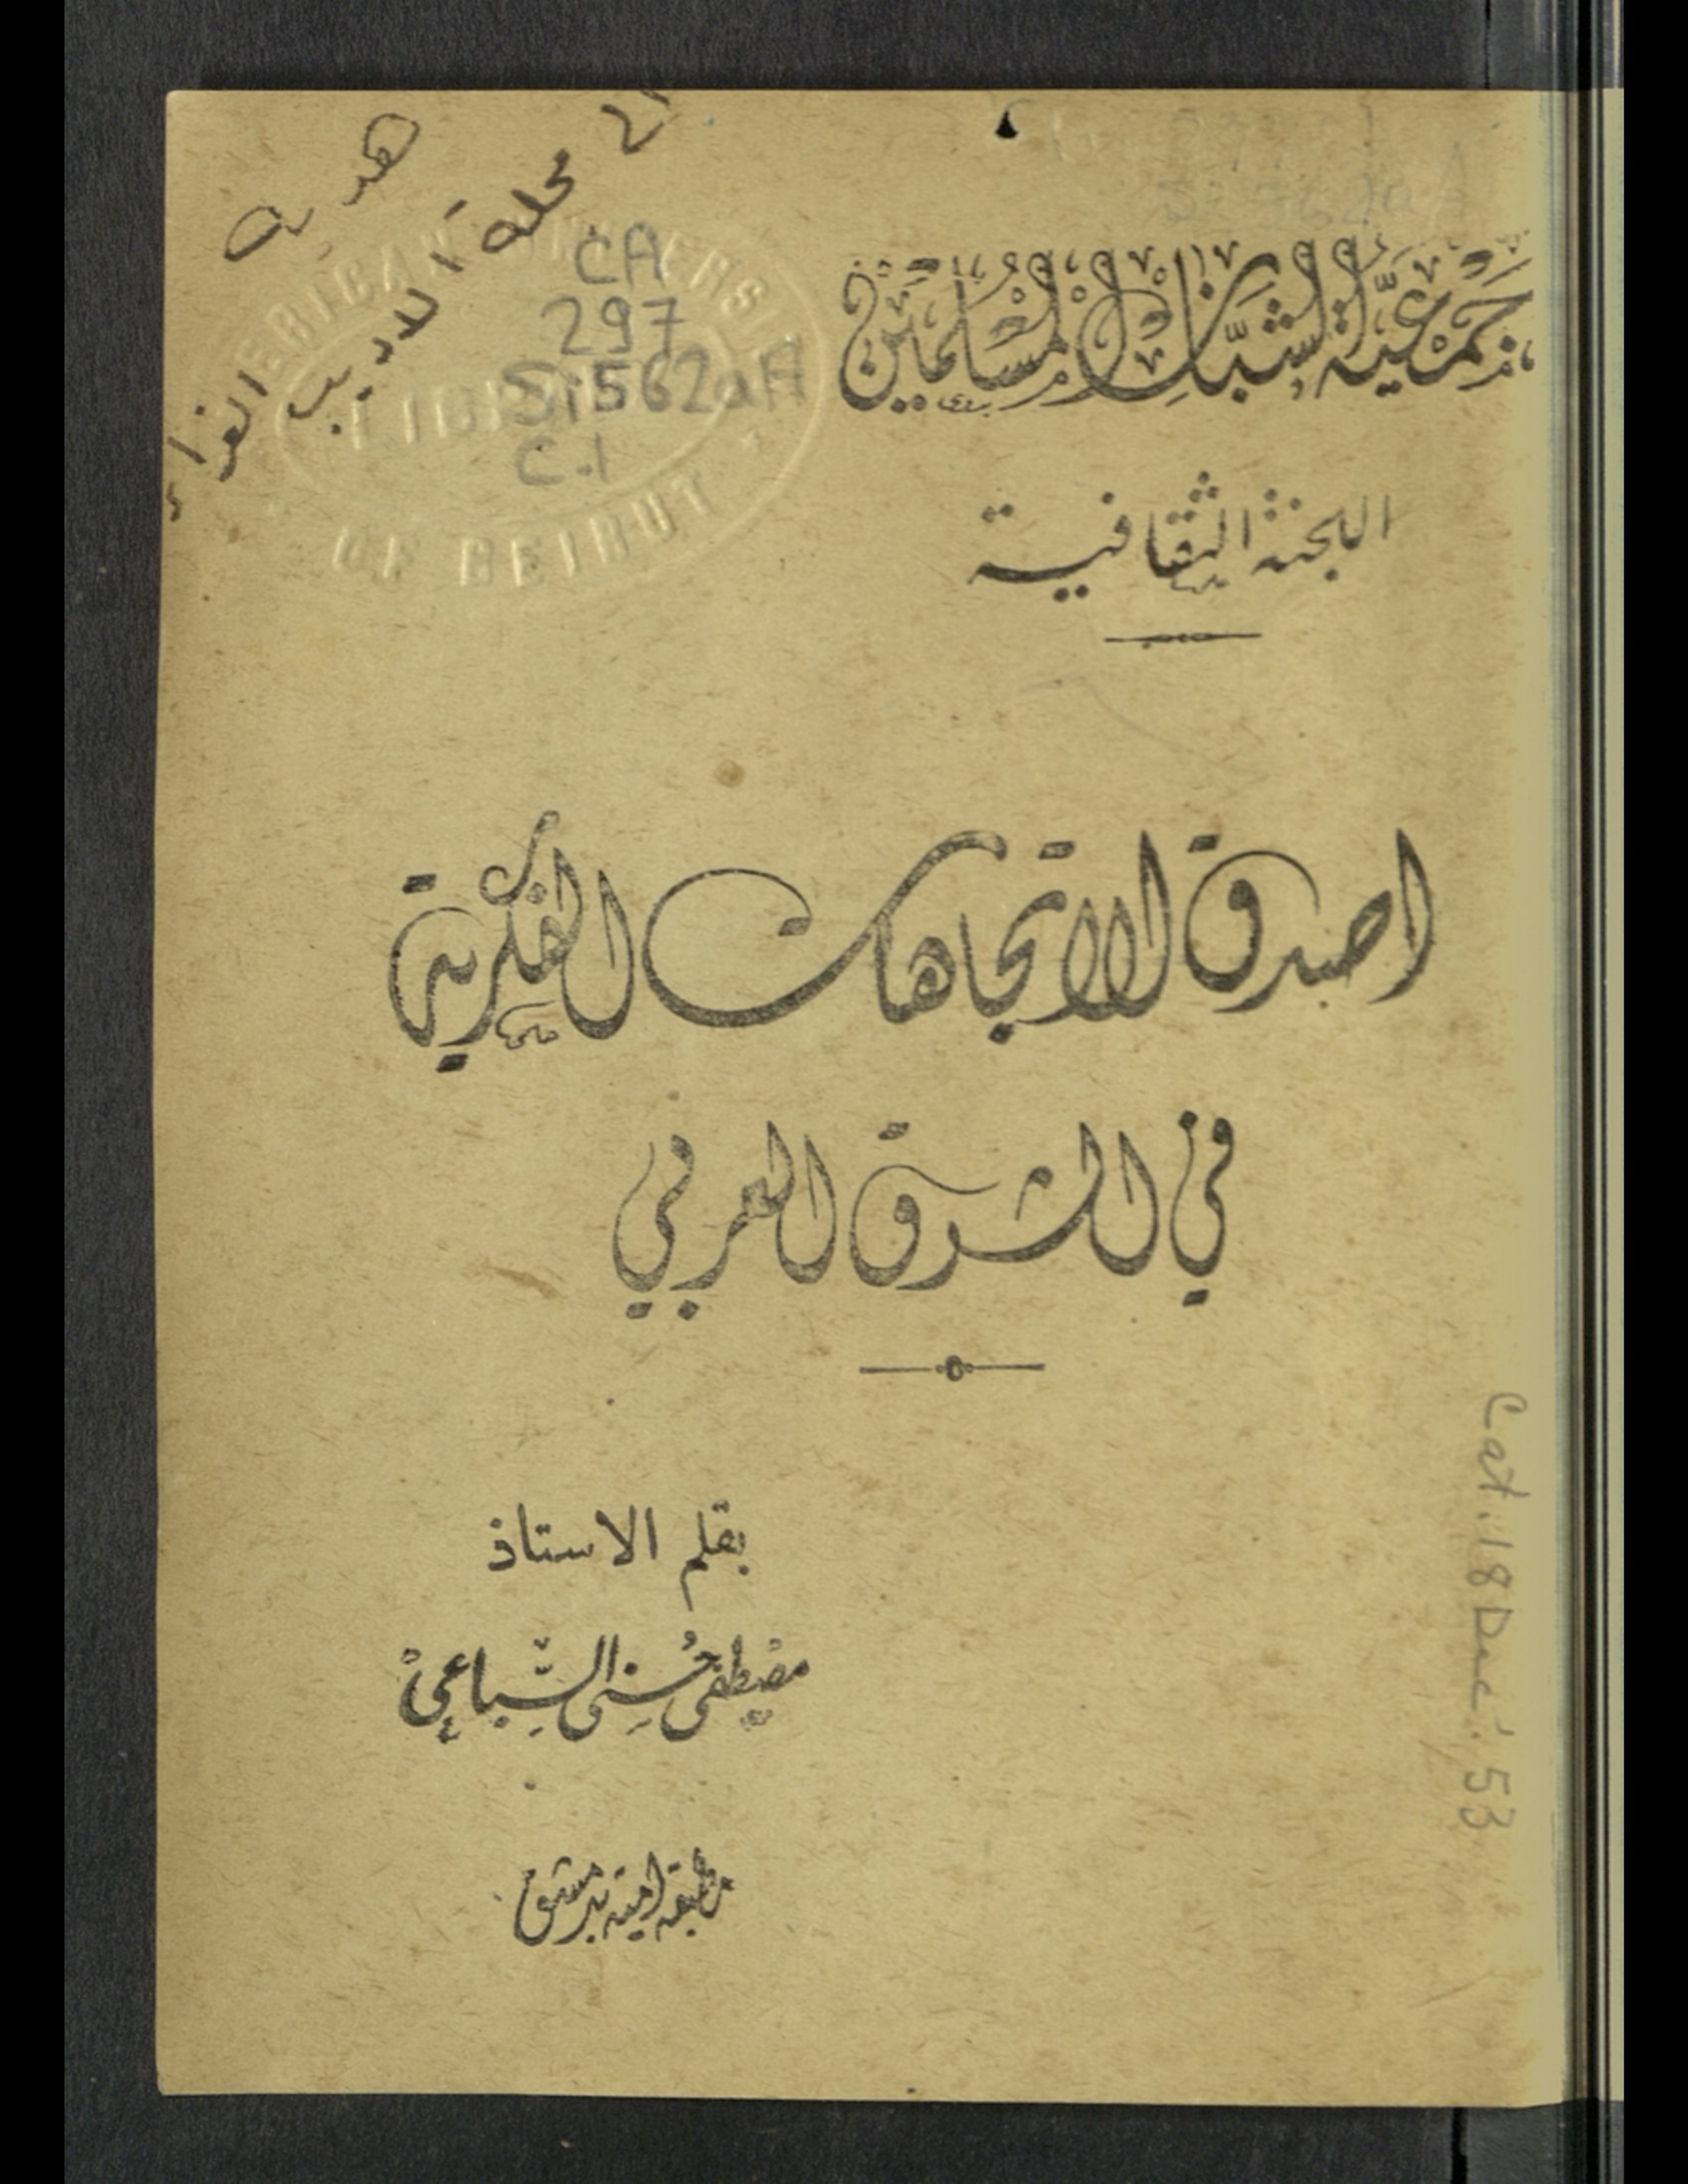 جمعية الشبان المسلمين
اللجنة الثقافية
اصدق الاتجاهات الفكرية
في الشرق العربي
بقلم الاستاذ
مصطفى حسني السباعي
مطبعة امية بدمشق
هدية
الى مجلة الاديب
CA
297
Si562aA
C.1
LIBRARY
OF BEIRUT
Cat. 18 Dec. 53